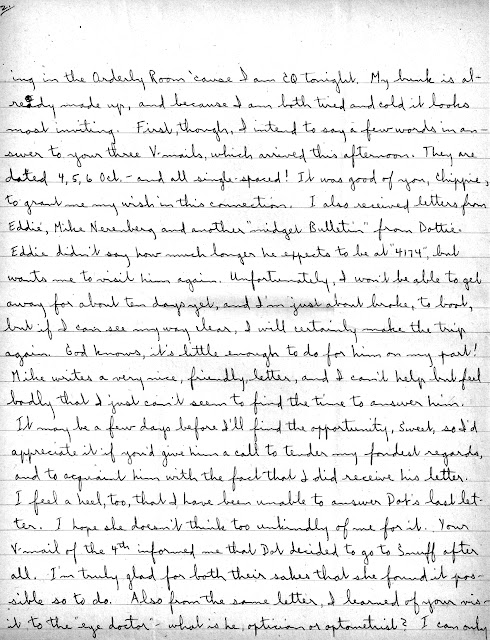 2/
ing in the Orderly Room 'cause I am CQ tonight. My bunk is al-
ready made up, and because I am both tired and cold it looks
most inviting. First, though, I intend to say a few words in an-
swer to your three V-mails, which arrived this afternoon. They are
dated 4, 5, 6 Oct. - and all single-spaced! It was good of you, Chippie,
to grant me my wish in this connection. I also received letters from
Eddie, Mike Nerenberg and another "midget Bulletin" from Dottie.
Eddie didn't say how much longer he expects to be at "4174", but
wants me to visit him again. Unfortunately, I won't be able to get
away for about ten days yet, and I'm just about broke, to boot,
but if I can see my way clear, I will certainly make the trip
again. God knows, it's little enough to do for him on my part!
Mike writes a very nice, friendly, letter, and I can't help but feel
badly that I just can't seem to find the time to answer him.
It may be a few days before I'll find the opportunity, Sweet, so I'd
appreciate it if you'd give him a call to tender my fondest regards,
and to acquaint him with the fact that I did receive his letter.
I feel a heel, too, that I have been unable to answer Dot's last let-
ter. I hope she doesn't think too unkindly of me for it. Your
V-mail of the 4th informed me that Dot decided to go to Snuff after
all. I'm truly glad for both their sakes that she found it pos-
sible so to do. Also from the same letter, I learned of your vis-
it to the "eye doctor" - what is he, optician or optometrist? I can only